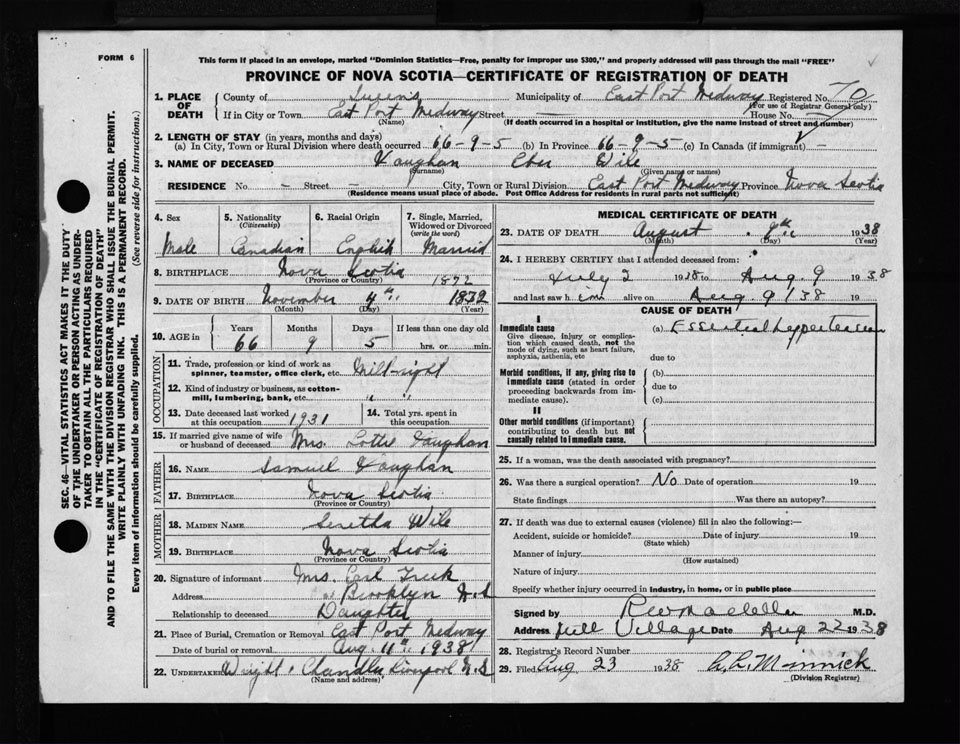 FORM 6
This form if placed in an envelope, marked "Dominion Statistics—Free, penalty for improper use $300," and properly addressed will pass through the mail "FREE"
PROVINCE OF NOVA SCOTIA—CERTIFICATE OF REGISTRATION OF DEATH
SEC. 46—VITAL STATISTICS ACT MAKES IT THE DUTY
OF THE UNDERTAKER OR PERSON ACTING AS UNDER-
TAKER TO OBTAIN ALL THE PARTICULARS REQUIRED
IN THE "CERTIFICATE OF REGISTRATION OF DEATH"
AND TO FILE THE SAME WITH THE DIVISION REGISTRAR WHO SHALL ISSUE THE BURIAL PERMIT.
WRITE PLAINLY WITH UNFADING INK. THIS IS A PERMANENT RECORD.
Every item of information should be carefully supplied. (See reverse side for instructions.)
1. PLACE OF DEATH County of Queens Municipality of East Port Medway Registered No. 70
(For use of Registrar General only)
If in City or Town East Port Medway Street — House No. —
(Name) (If death occurred in a hospital or institution, give the name instead of street and number)
2. LENGTH OF STAY (in years, months and days)
(a) In City, Town or Rural Division where death occurred 66-9-5 (b) In Province 66-9-5 (c) In Canada (if immigrant) —
3. NAME OF DECEASED Vaughan Eber Wile
(Surname) (Given name or names)
RESIDENCE No. — Street — City, Town or Rural Division East Port Medway Province Nova Scotia
(Residence means usual place of abode. Post Office Address for residents in rural parts not sufficient)
4. Sex 5. Nationality (Citizenship) 6. Racial Origin 7. Single, Married, Widowed or Divorced (write the word)
Male Canadian English Married
8. BIRTHPLACE Nova Scotia
(Province or Country) 1872
9. DATE OF BIRTH November 4th 1832
(Month) (Day) (Year)
10. AGE in Years Months Days If less than one day old
66 9 5 hrs. or min.
OCCUPATION
11. Trade, profession or kind of work as spinner, teamster, office clerk, etc. Millwright
12. Kind of industry or business, as cotton-mill, lumbering, bank, etc. " "
13. Date deceased last worked at this occupation 1931 14. Total yrs. spent in this occupation
15. If married give name of wife or husband of deceased Mrs. Lottie Vaughan
FATHER
16. NAME Samuel Vaughan
17. BIRTHPLACE Nova Scotia
(Province or Country)
MOTHER
18. MAIDEN NAME Seretha Wile
19. BIRTHPLACE Nova Scotia
(Province or Country)
20. Signature of informant Mrs. Earl
Address Brooklyn N.S
Relationship to deceased Daughter
21. Place of Burial, Cremation or Removal East Port Medway
Date of burial or removal Aug. 11th 1938
22. UNDERTAKER Wright & Chandler Liverpool N.S
(Name and address)
MEDICAL CERTIFICATE OF DEATH
23. DATE OF DEATH August 9th 1938
(Month) (Day) (Year)
24. I HEREBY CERTIFY that I attended deceased from:
July 2 1938 to Aug. 9 1938
and last saw him alive on Aug. 9/38 19
CAUSE OF DEATH
I
Immediate cause (a) Essential Hypertension
Give disease, injury or complica-
tion which caused death, not the
mode of dying, such as heart failure,
asphyxia, asthenia, etc due to
Morbid conditions, if any, giving rise to (b)
immediate cause (stated in order due to
proceeding backwards from im-
mediate cause). (c)
II
Other morbid conditions (if important)
contributing to death but not
causally related to immediate cause.
25. If a woman, was the death associated with pregnancy?
26. Was there a surgical operation? No Date of operation 19
State findings Was there an autopsy?
27. If death was due to external causes (violence) fill in also the following:—
Accident, suicide or homicide? Date of injury 19
(State which)
Manner of injury
(How sustained)
Nature of injury
Specify whether injury occurred in industry, in home, or in public place
Signed by M.D.
Address Mill Village Date Aug 22 1938
28. Registrar's Record Number
29. Filed Aug 23 1938 Minnick
(Division Registrar)